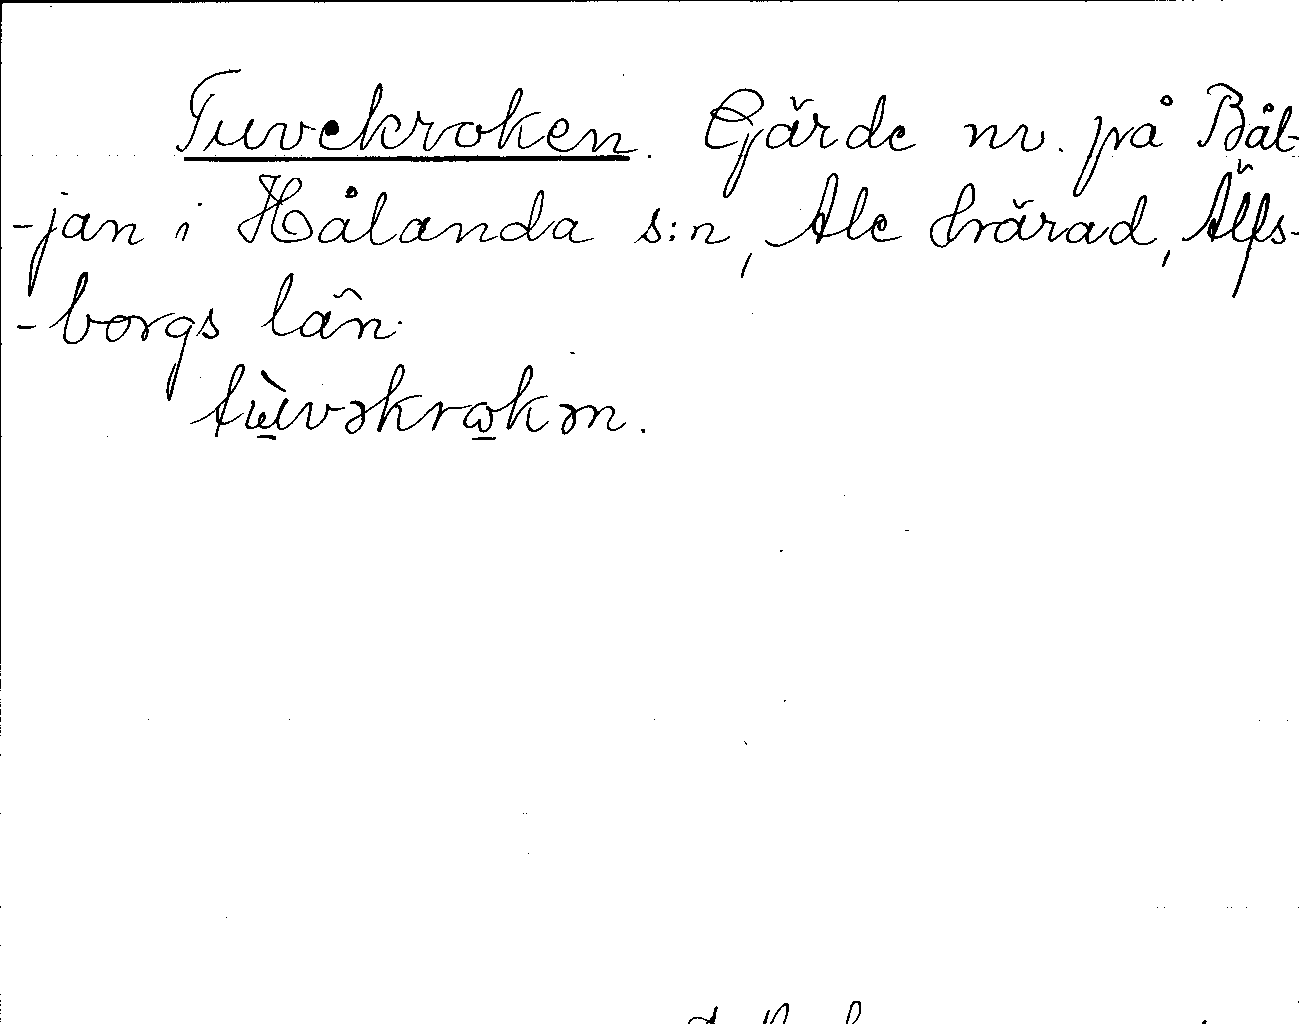 Tuvekroken. Gärde nv. på Bål-
-jan i Hålanda s:n, Ale härad, Älfs-
-borgs län.
tùvəkrokən.